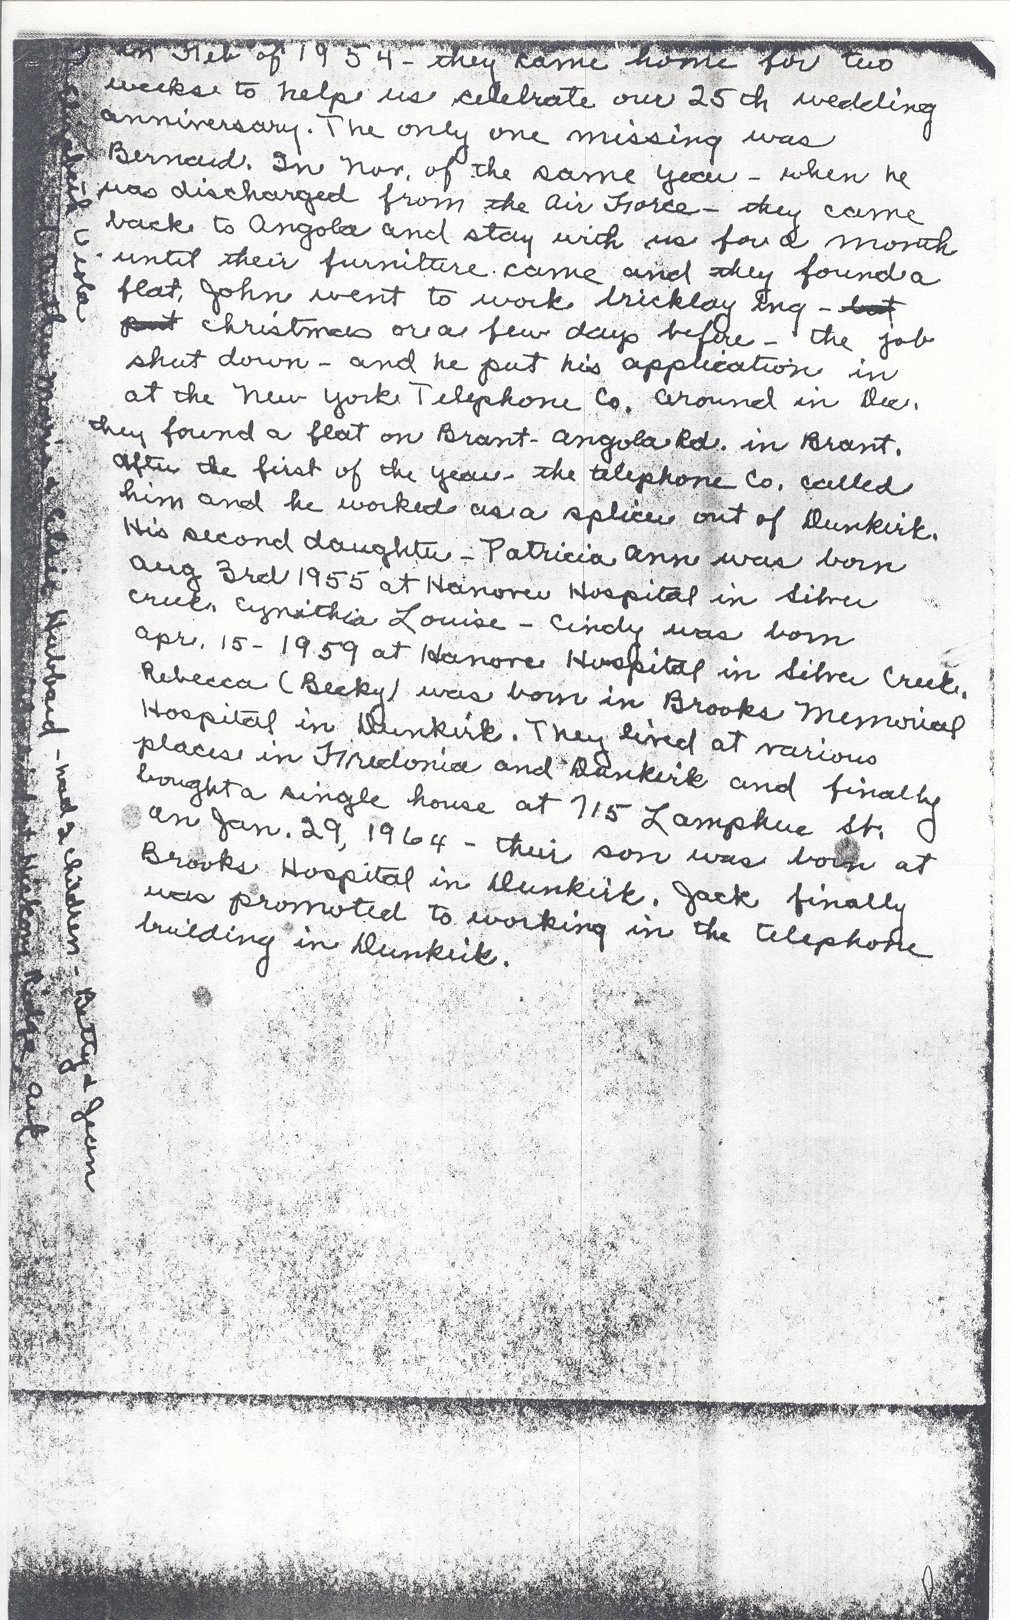 in Feb of 1954 - they came home for two
weeks to help us celebrate our 25th wedding
anniversary. The only one missing was
Bernard. In Nov. of the same year - when he
was discharged from the Air Force - they came
back to Angola and stay with us for a month
until their furniture came and they found a
flat. John went to work bricklaying - but
put christmas or a few days before - the job
shut down - and he put his application in
at the New York Telephone Co. around in Dec.
they found a flat on Brant-Angola Rd. in Brant.
After the first of the year - the telephone Co. called
him and he worked as a splicer out of Dunkirk.
His second daughter - Patricia Ann was born
Aug 3rd 1955 at Hanover Hospital in Silver
Creek. Cynithia Louise - Cindy was born
Apr. 15 - 1959 at Hanover Hospital in Silver Creek.
Rebecca (Becky) was born in Brooks Memorial
Hospital in Dunkirk. They lived at various
places in Fredonia and Dunkirk and finally
bought a single house at 715 Lamphere St.
On Jan. 29, 1964 - their son was born at
Brooks Hospital in Dunkirk. Jack finally
was promoted to working in the telephone
building in Dunkirk.
Viola
Marie & Hubbard - had 2 children - Betty & Jean
at Ridge, Ark